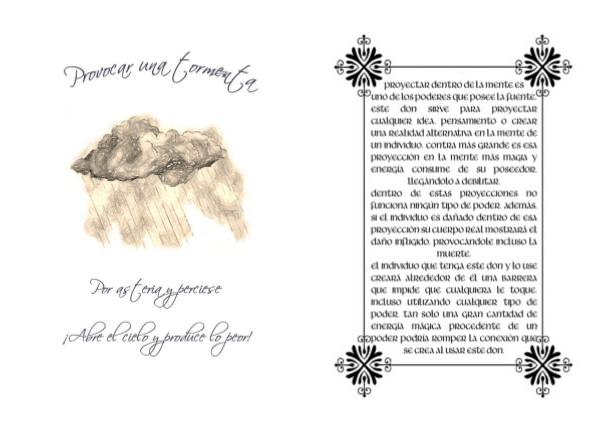 Provocar una tormenta
Por asteria y perciese
¡Abre el cielo y produce lo peor!
proyectar dentro de la mente es
uno de los poderes que posee la fuente.
este don sirve para proyectar
cualquier idea, pensamiento o crear
una realidad alternativa en la mente de
un individuo. contra más grande es esa
proyección en la mente más magia y
energía consume de su poseedor.
llegándolo a debilitar.
dentro de estas proyecciones no
funciona ningún tipo de poder. además,
si el individuo es dañado dentro de esa
proyección su cuerpo real mostrará el
daño infligido, provocándole incluso la
muerte.
el individuo que tenga este don y lo use
creará alrededor de él una barrera
que impide que cualquiera le toque,
incluso utilizando cualquier tipo de
poder. tan solo una gran cantidad de
energía mágica procedente de un
poder podría romper la conexión que
se crea al usar este don.